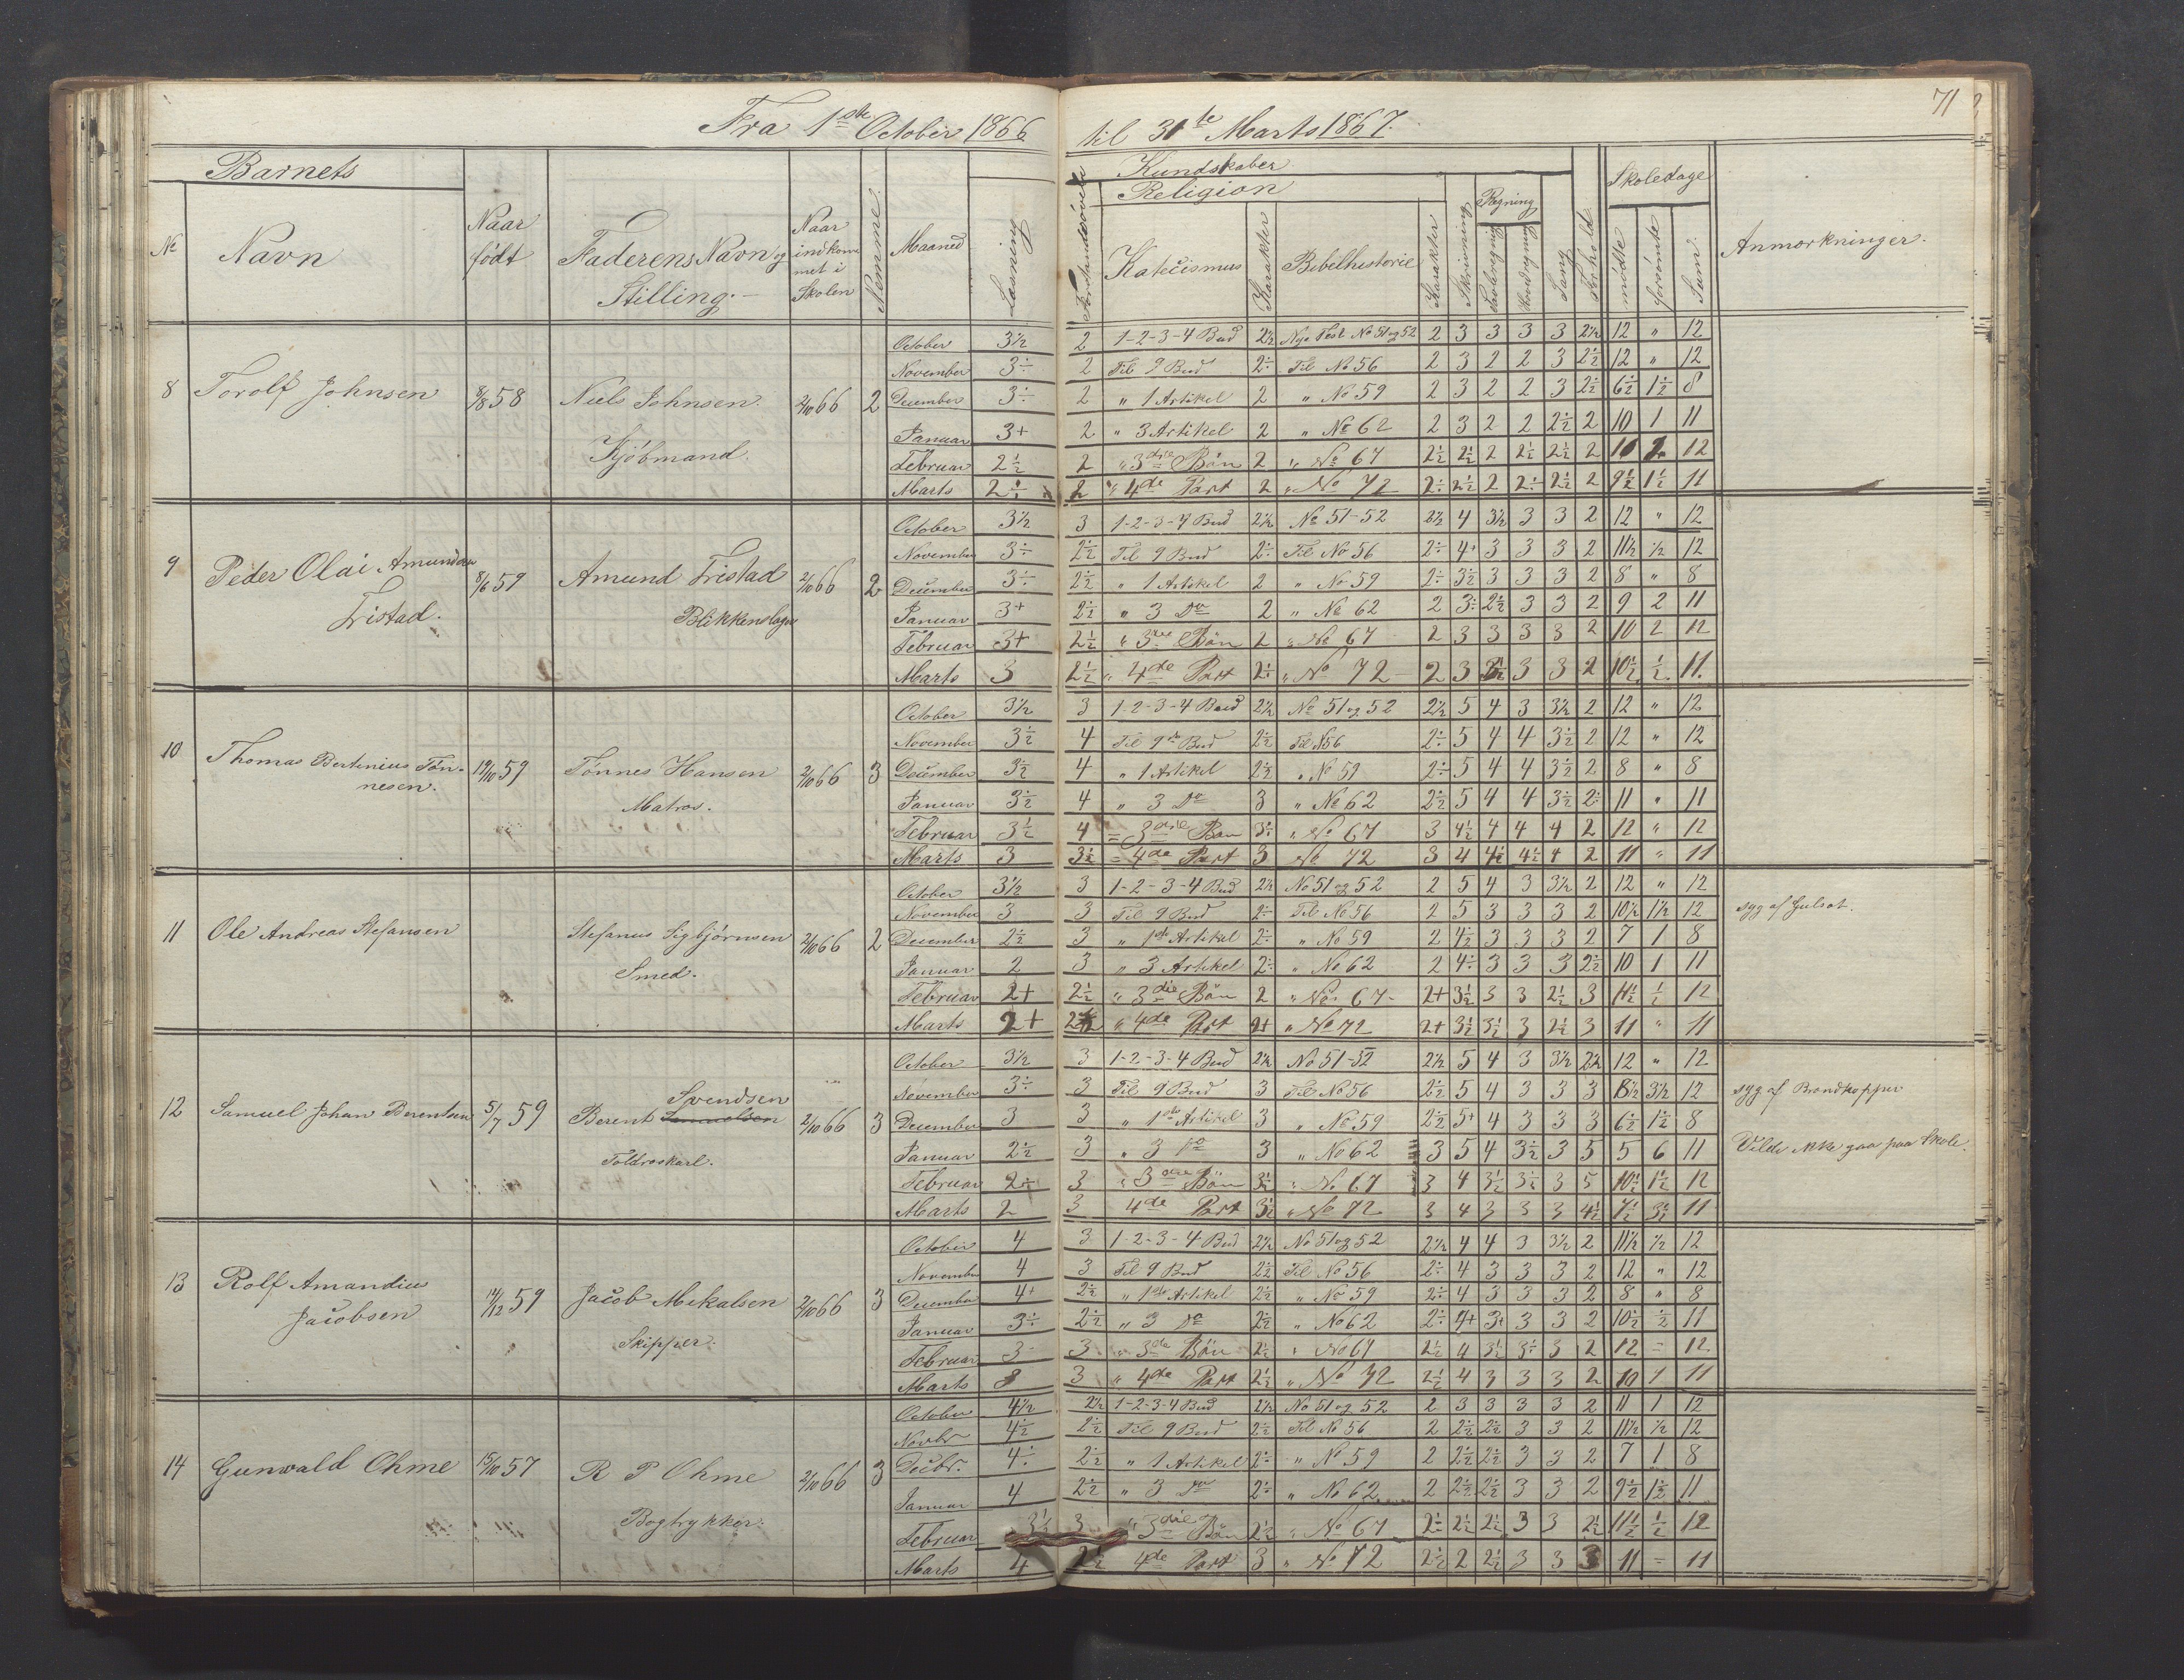 71
Fra 1ste October 1866 til 31te Marts 1867.
Barnets
Kundskaber
Religion
Regning
Skoledage
No
Navn
Naar født
Faderens Navn og Stilling.
Naar indkommet i Skolen
Nemme.
Maaned
Læsning
Katecismus
Karakter
Bibelhistorie
Karakter
Skrivning
Sang
Forhold
mødte
forsømte
Sum.
Anmærkninger.
8 Torolf Johnsen 8/8 58 Niels Johnsen. 2/10 66 2
Kjøbmand.
October 3½ 2 1-2-3-4 Bud 2½ Nye Test No 51 og 52 2 3 3 3 3 2½ 12 " 12
November 3÷ 2 Til 9 Bud 2÷ Til No 56 2 3 2 2 3 2½ 12 " 12
December 3÷ 2 " 1 Artikel 2 " No 59 2 3 2 2 3 2½ 6½ 1½ 8
Januar 3+ 2 " 3 Artikel 2 " No 62 2 3 2 2 2½ 2 10 1 11
Februar 2½ 2 " 3die Bön 2 " No 67 2½ 2½ 2 2½ 2½ 2 10 2 12
Marts 2÷ 2 " 4de Part 2 " No 72 2÷ 2½ 2 2÷ 2½ 2 9½ 1½ 11
9 Peder Olai Amundsen 8/6 59 Amund Tristad 2/10 66 2
Tristad. Blikkenslager
October 3½ 3 1-2-3-4 Bud 2½ No 51-52 2½ 4 3½ 3 3 2 12 " 12
November 3÷ 2½ Til 9 Bud 2÷ Til No 56 2÷ 4+ 3 3 3 2 11½ ½ 12
December 3÷ 2½ " 1 Artikel 2 " No 59 2÷ 3½ 3 3 3 2 8 " 8
Januar 3+ 2½ " 3 Do 2 " No 62 2 3÷ 2½ 3 3 2 9 2 11
Februar 3+ 2½ " 3die Bön 2 " No 67 2 3 3 3 3 2 10 2 12
Marts 3 2½ " 4de Part 2÷ " No 72 2 3 3 3 2 10½ ½ 11.
10 Thomas Bertinius Tön- 19/10 59 Tönnes Hansen 2/10 66 3
nesen. Matros.
October 3½ 3 1-2-3-4 Bud 2½ No 51 og 52 2½ 5 4 3 3½ 2 12 " 12
November 3½ 4 Til 9de Bud 2½ Til No 56 2÷ 5 4 4 3½ 2 12 " 12
December 3½ 4 " 1 Artikel 2½ " No 59 2÷ 5 4 4 3½ 2 8 " 8
Januar 3½ 4 " 3 Do 3 " No 62 2½ 5 4 4 3½ 2÷ 11 " 11
Februar 3½ 4 = 3die Bön 3÷ " No 67 3 4½ 4 4 4 2 12 " 12
Marts 3 3½ = 4de Part 3 No 72 3 4 4½ 4½ 4 2 11 " 11
11 Ole Andreas Stefansen Stefanus Sigbjörnsen 2/10 66 2
Smed.
October 3½ 3 1-2-3-4 Bud 2½ No 51 og 52 2 5 4 3 3½ 2 12 " 12
November 3 3 Til 9 Bud 2÷ Til No 56 2 5 3 3 3 2 10½ 1½ 12 syg af Gulsot.
December 2½ 3 " 1ste Artikel 2÷ " No 59 2 4½ 3 3 3 2 7 1 8
Januar 2 3 " 3 Artikel 2÷ " No 62 2 4÷ 3 3 3 2½ 10 1 11
Februar 2+ 2½ " 3die Bön 2 " No 67 2+ 3½ 3 3 2½ 3 11½ ½ 12
Marts 2+ " 4de Part 2+ " No 72 2+ 3½ 3½ 3 2½ 3 11 " 11
12 Samuel Johan Berentsen 5/7 59 Berent Samuelsen Svendsen 2/10 66 3
Toldroskarl.
October 3½ 3 1-2-3-4 Bud 2½ No 51-52 2½ 5 4 3 3½ 2½ 12 " 12
November 3÷ 3 Til 9 Bud 3 Til No 56 2½ 5 4 3 3 3 8½ 3½ 12 syg af Brandkopper
December 3 3 " 1ste Artikel 3 " No 59 2½ 5+ 4 3 3 3 6½ 1½ 8
Januar 2½ 3 " 3 Do 3 " No 62 3 5 4 3½ 3 5 5 6 11 Vilde ikke gaa paa Skole.
Februar 2÷ 3 " 3die Bön 3½ " No 67 3 4 3½ 3½ 3 5 10½ 1½ 12
Marts 2 3 4de Part 3½ " No 72 3 4 3 3 3 4½ 7½ 3½ 11
13 Rolf Amandius 14/12 59 Jacob Mikalsen 2/10 66 3
Jacobsen Skipper.
October 4 3 1-2-3-4 Bud 2½ No 51 og 52 2½ 4 4 3 3½ 2 11½ ½ 12
November 4 3 Til 9 Bud 2½ Til No 56 2÷ 4 3 3 3 2 12 " 12
December 4+ 2½ " 1ste Artikel 2½ " No 59 2÷ 4 3 3 3 2 8 " 8
Januar 3÷ 2½ " 3 Do 2½ " No 62 2÷ 4+ 3+ 3 3 2 10½ ½ 11
Februar 3 3 " 3de Bön 2½ " No 67 2½ 4 3½ 3÷ 3 2 12 = 12
Marts 3 3 " 4de Part 2½ " No 72 2½ 4 3 3 3 2 10 1 11
14 Gunvald Ohme 15/10 57 R P Ohme 2/10 66 3
Bogtrykker.
October 4½ 2½ 1-2-3-4 Bud 2½ No 51 og 52 2 3 3 3 3 2 11 1 12
Novbr 4½ 2½ Til 9 Bud 2½ Til No 56 2 2½ 2½ 3 3 2 11½ ½ 12
Decbr. 4÷ 2½ " 1 Artikel 2÷ " No 59 2 2½ 2½ 3 3 2 7 1 8
Januar 4 2½ " 3 Do 2÷ " No 62 2 2½ 2½ 3 3 2 9½ 1½ 11
Februar 3½ 3 " 3die Bön 2½ " No 67 2÷ 2½ 2½ 3 3 2½ 11½ ½ 12
Marts 4 2½ 4de Part 3 " No 72 2½ 2 2½ 3 3 3 11 = 11